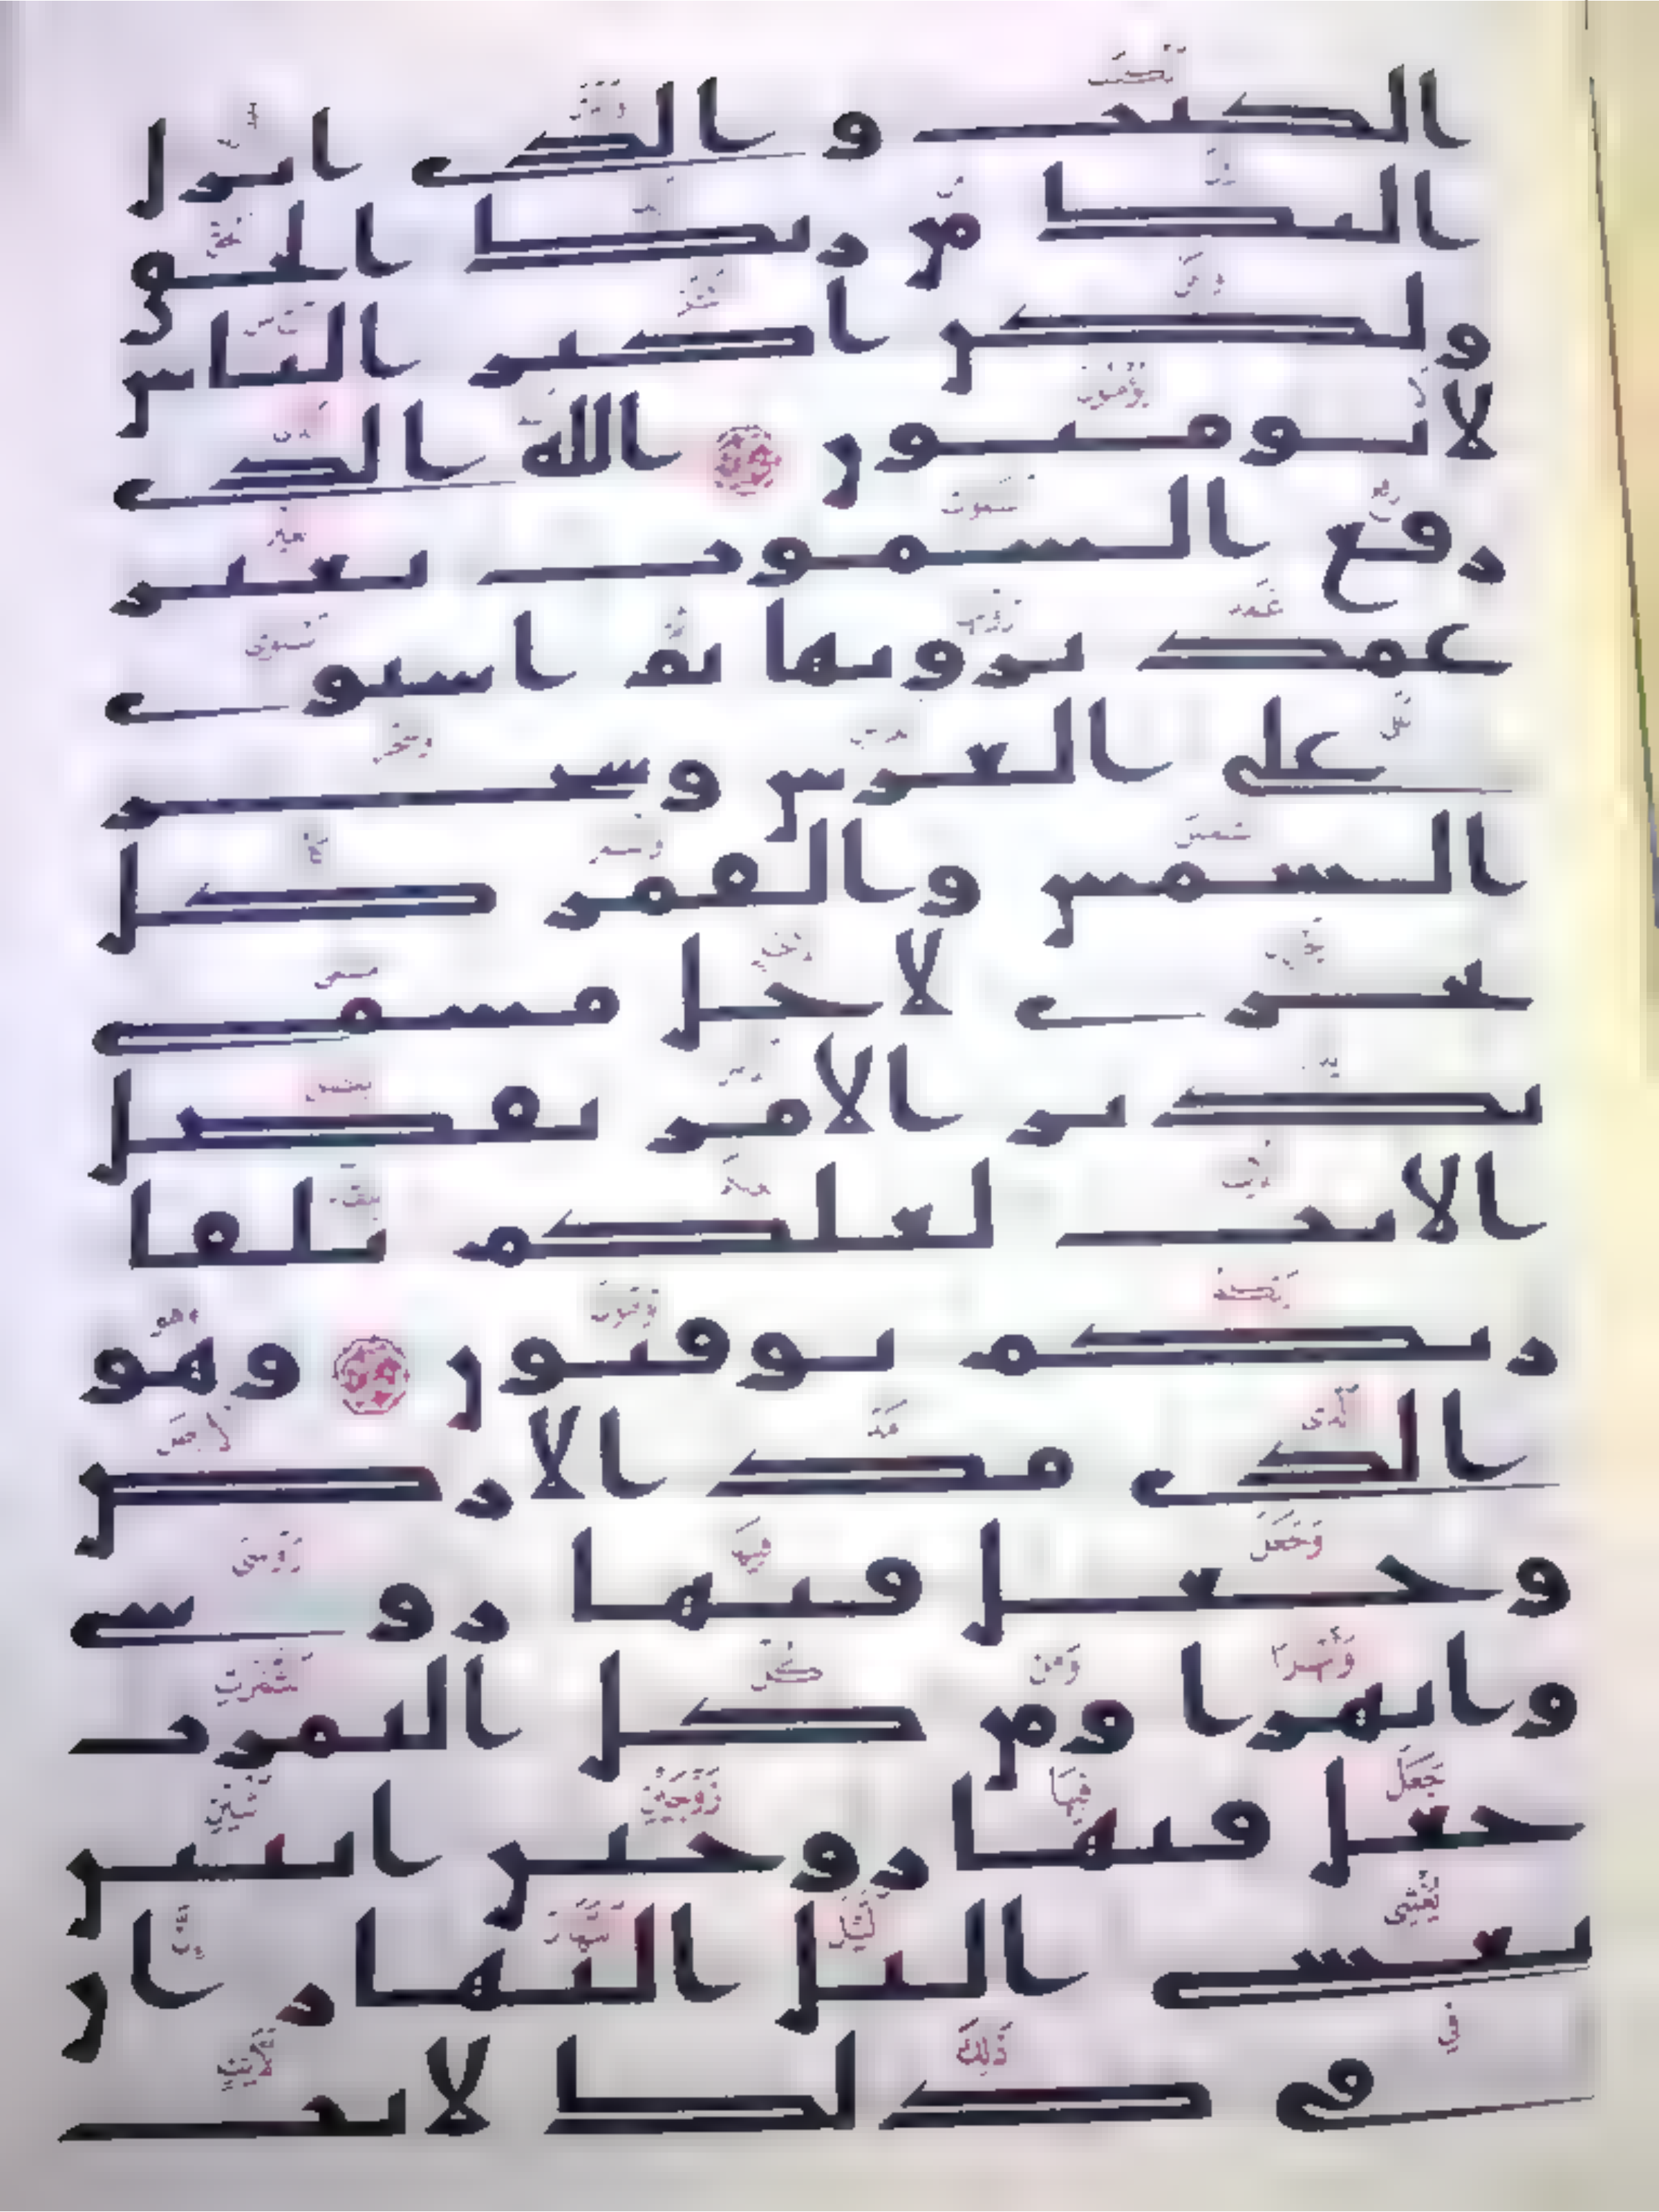 الكتب و الذى انزل
اليك من ربك الحق
ولكن اكثر الناس
لا يومنون الله الذى
رفع السموت بغير
عمد ترونها ثم استوى
على العرش وسخر
الشمس والقمر كل
يجرى لاجل مسمى
يدبر الامر يفصل
الايت لعلكم بلقا
ربكم توقنون وهو
الذى مد الارض
وجعل فيها روسى
وانهرا ومن كل الثمرت
جعل فيها زوجين اثنين
يغشى اليل النهار ان
فى ذلك لايت